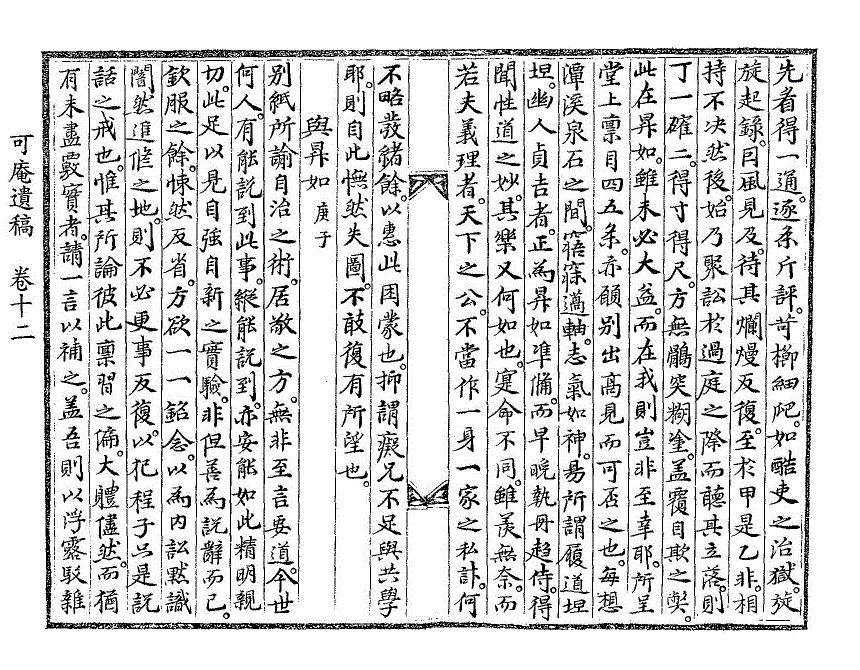 先看得一通。逐条斤評。苛櫛細爬。如酷吏之治獄。旋
旋起錄。因風見及。待其爛熳反復。至於甲是乙非。相
持不决然後。始乃聚訟於過庭之際。而聽其立落。則
丁一確二。得寸得尺。方無鶻突糊塗。盖覆自欺之獘。
此在昇如。雖未必大益。而在我則豈非至幸耶。所呈
堂上稟目四五条。亦願別出高見而可否之也。每想
潭溪泉石之間。寤寐薖軸。志氣如神。易所謂履道坦
坦。幽人貞吉者。正爲昇如准備。而早晩執册趍侍。得
聞性道之妙。其樂又何如也。寔命不同。雖羨無奈。而
若夫義理者。天下之公。不當作一身一家之私計。何
不略發緖餘。以惠此困蒙也。抑謂癡兄不足與共學
耶。則自此憮然失圖。不敢復有所望也。
與昇如 庚子
別紙所諭自治之術。居敬之方。無非至言要道。今世
何人。有能說到此事。縱能說到。亦安能如此精明親
切。此足以見自強自新之實驗。非但善爲說辭而已。
欽服之餘。悚然反省。方欲一一銘念。以爲內訟默識
闇然進修之地。則不必更事反復。以犯程子只是說
話之戒也。惟其所論彼此稟習之偏。大體儘然。而猶
有未盡覈實者。請一言以補之。盖吾則以浮露駁雜
可庵遺稿 卷十二